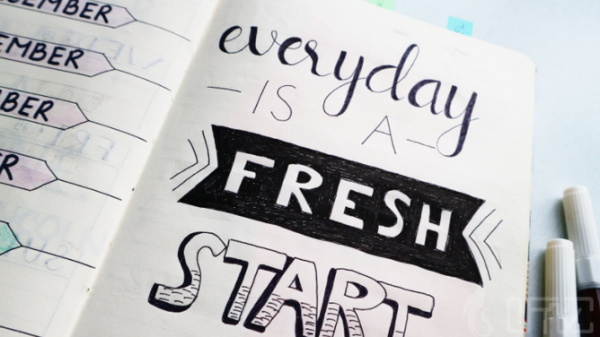 CEMBER
EMBER
MBER
ER
everyday
IS
A
FRESH
START